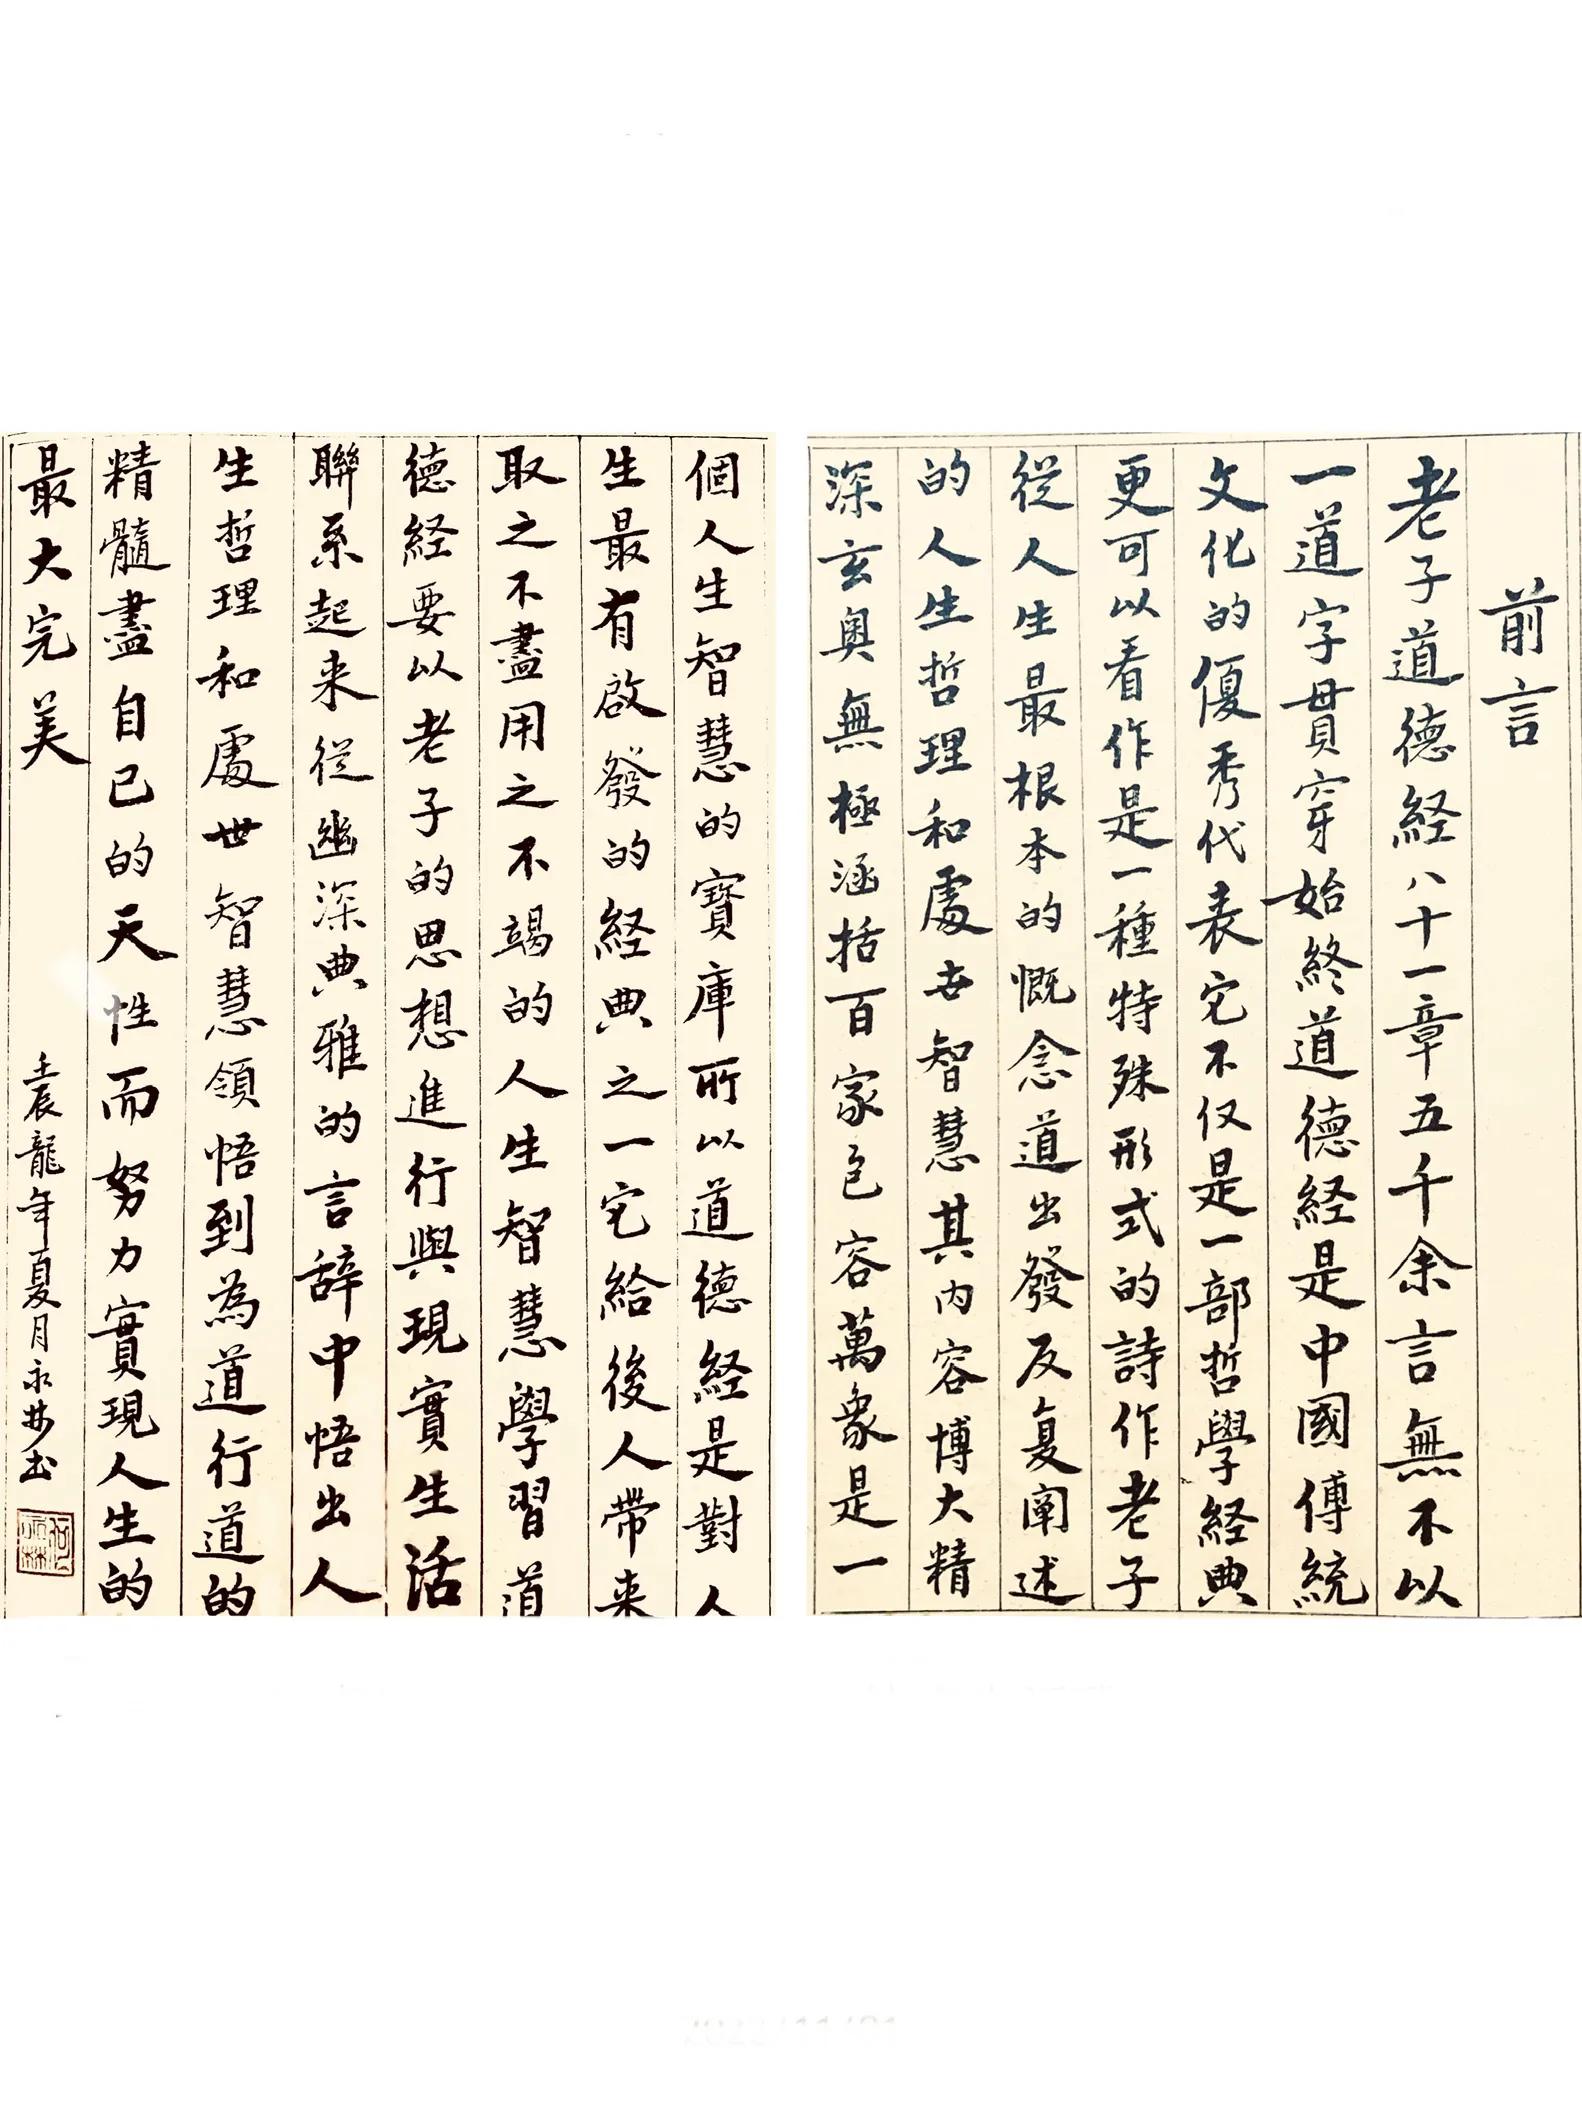 前言
老子道德経八十一章五千余言無不以
一道字貫穿始終道德経是中國傳統
文化的優秀代表它不仅是一部哲學経典
更可以看作是一種特殊形式的詩作老子
從人生最根本的慨念道出發反复阐述
的人生哲理和處世智慧其内容博大精
深玄奥無極涵括百家包容萬象是一
個人生智慧的寶庫所以道德経是對人
生最有啟發的経典之一它給後人帶来
取之不盡用之不竭的人生智慧學習道
德経要以老子的思想進行與現實生活
聯系起来從幽深典雅的言辞中悟出人
生哲理和處世智慧領悟到為道行道的
精髓盡自己的天性而努力實現人生的
最大完美
壬辰龍年夏月永林书